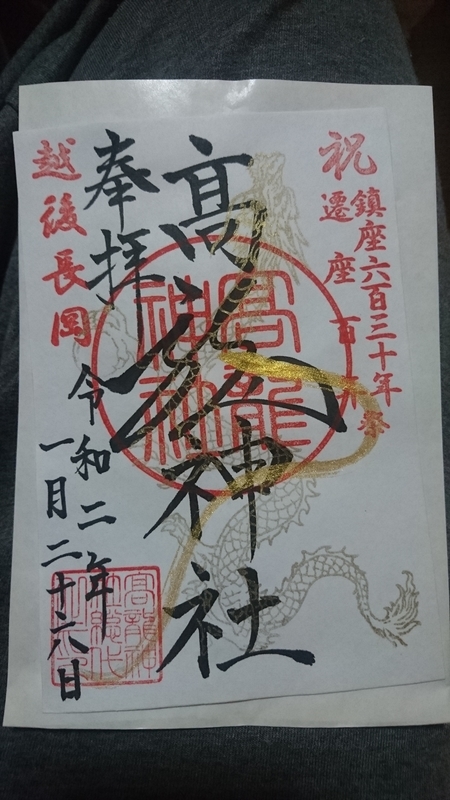 祝
鎮座六百三十年祭
遷座百年祭
髙龍神社
奉拝
越後長岡
令和二年
一月二十六日
高龍
神社